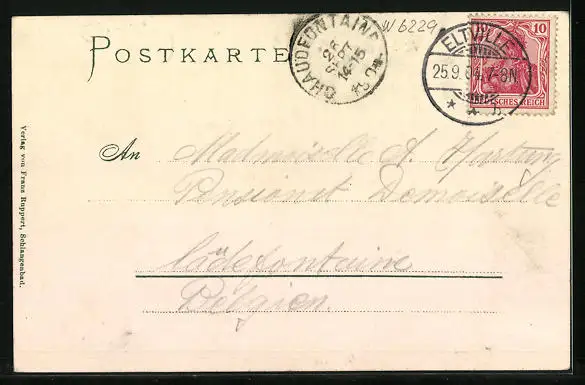 W 6229
POSTKARTE
CHAUDFONTAINE
14-15
ELTVILLE
25.9.04.7-8N
10
DEUTSCHES REICH
An Mademoiselle A. Hartung
Pensionat Demoiselle
Cädefontaine
Belgien.
Verlag von Franz Ruppert, Schlangenbad.